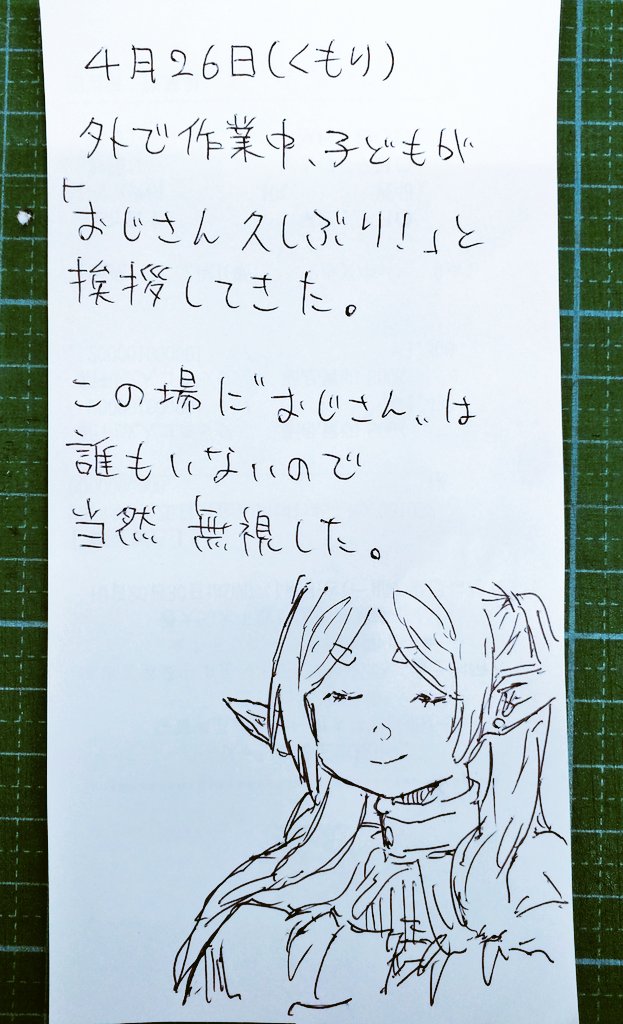 4月26日(くもり)
外で作業中、子どもが
「おじさん 久しぶり!」と
挨拶してきた。
この場に〝おじさん〟は
誰もいないので
当然 無視した。